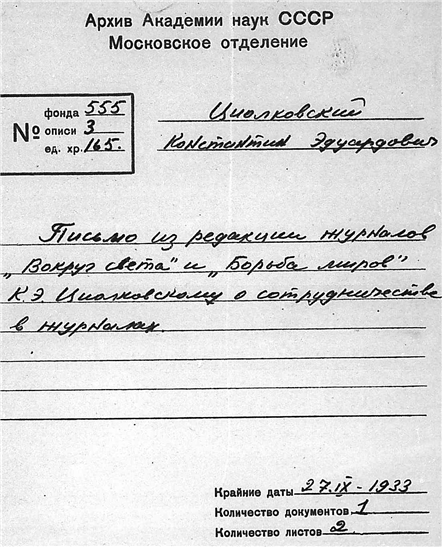 Архив Академии наук СССР
Московское отделение
№
фонда 555
описи 3
ед. хр. 165.
Циолковский
Константин Эдуардович
Письмо из редакции журналов
„Вокруг света" и „Борьба миров"
К.Э. Циолковскому о сотрудничестве
в журналах.
Крайние даты 27.IX - 1933
Количество документов 1
Количество листов 2